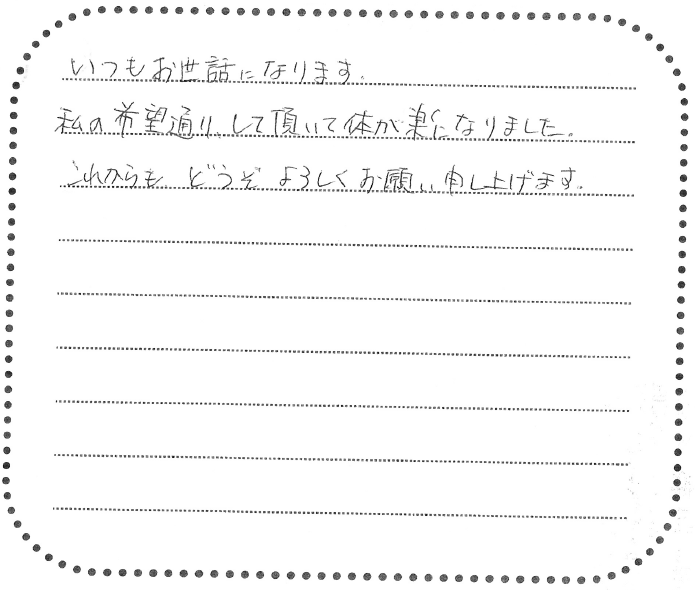 いつもお世話になります。
私の希望通りして頂いて体が楽になりました。
これからも、どうぞよろしくお願い申し上げます。